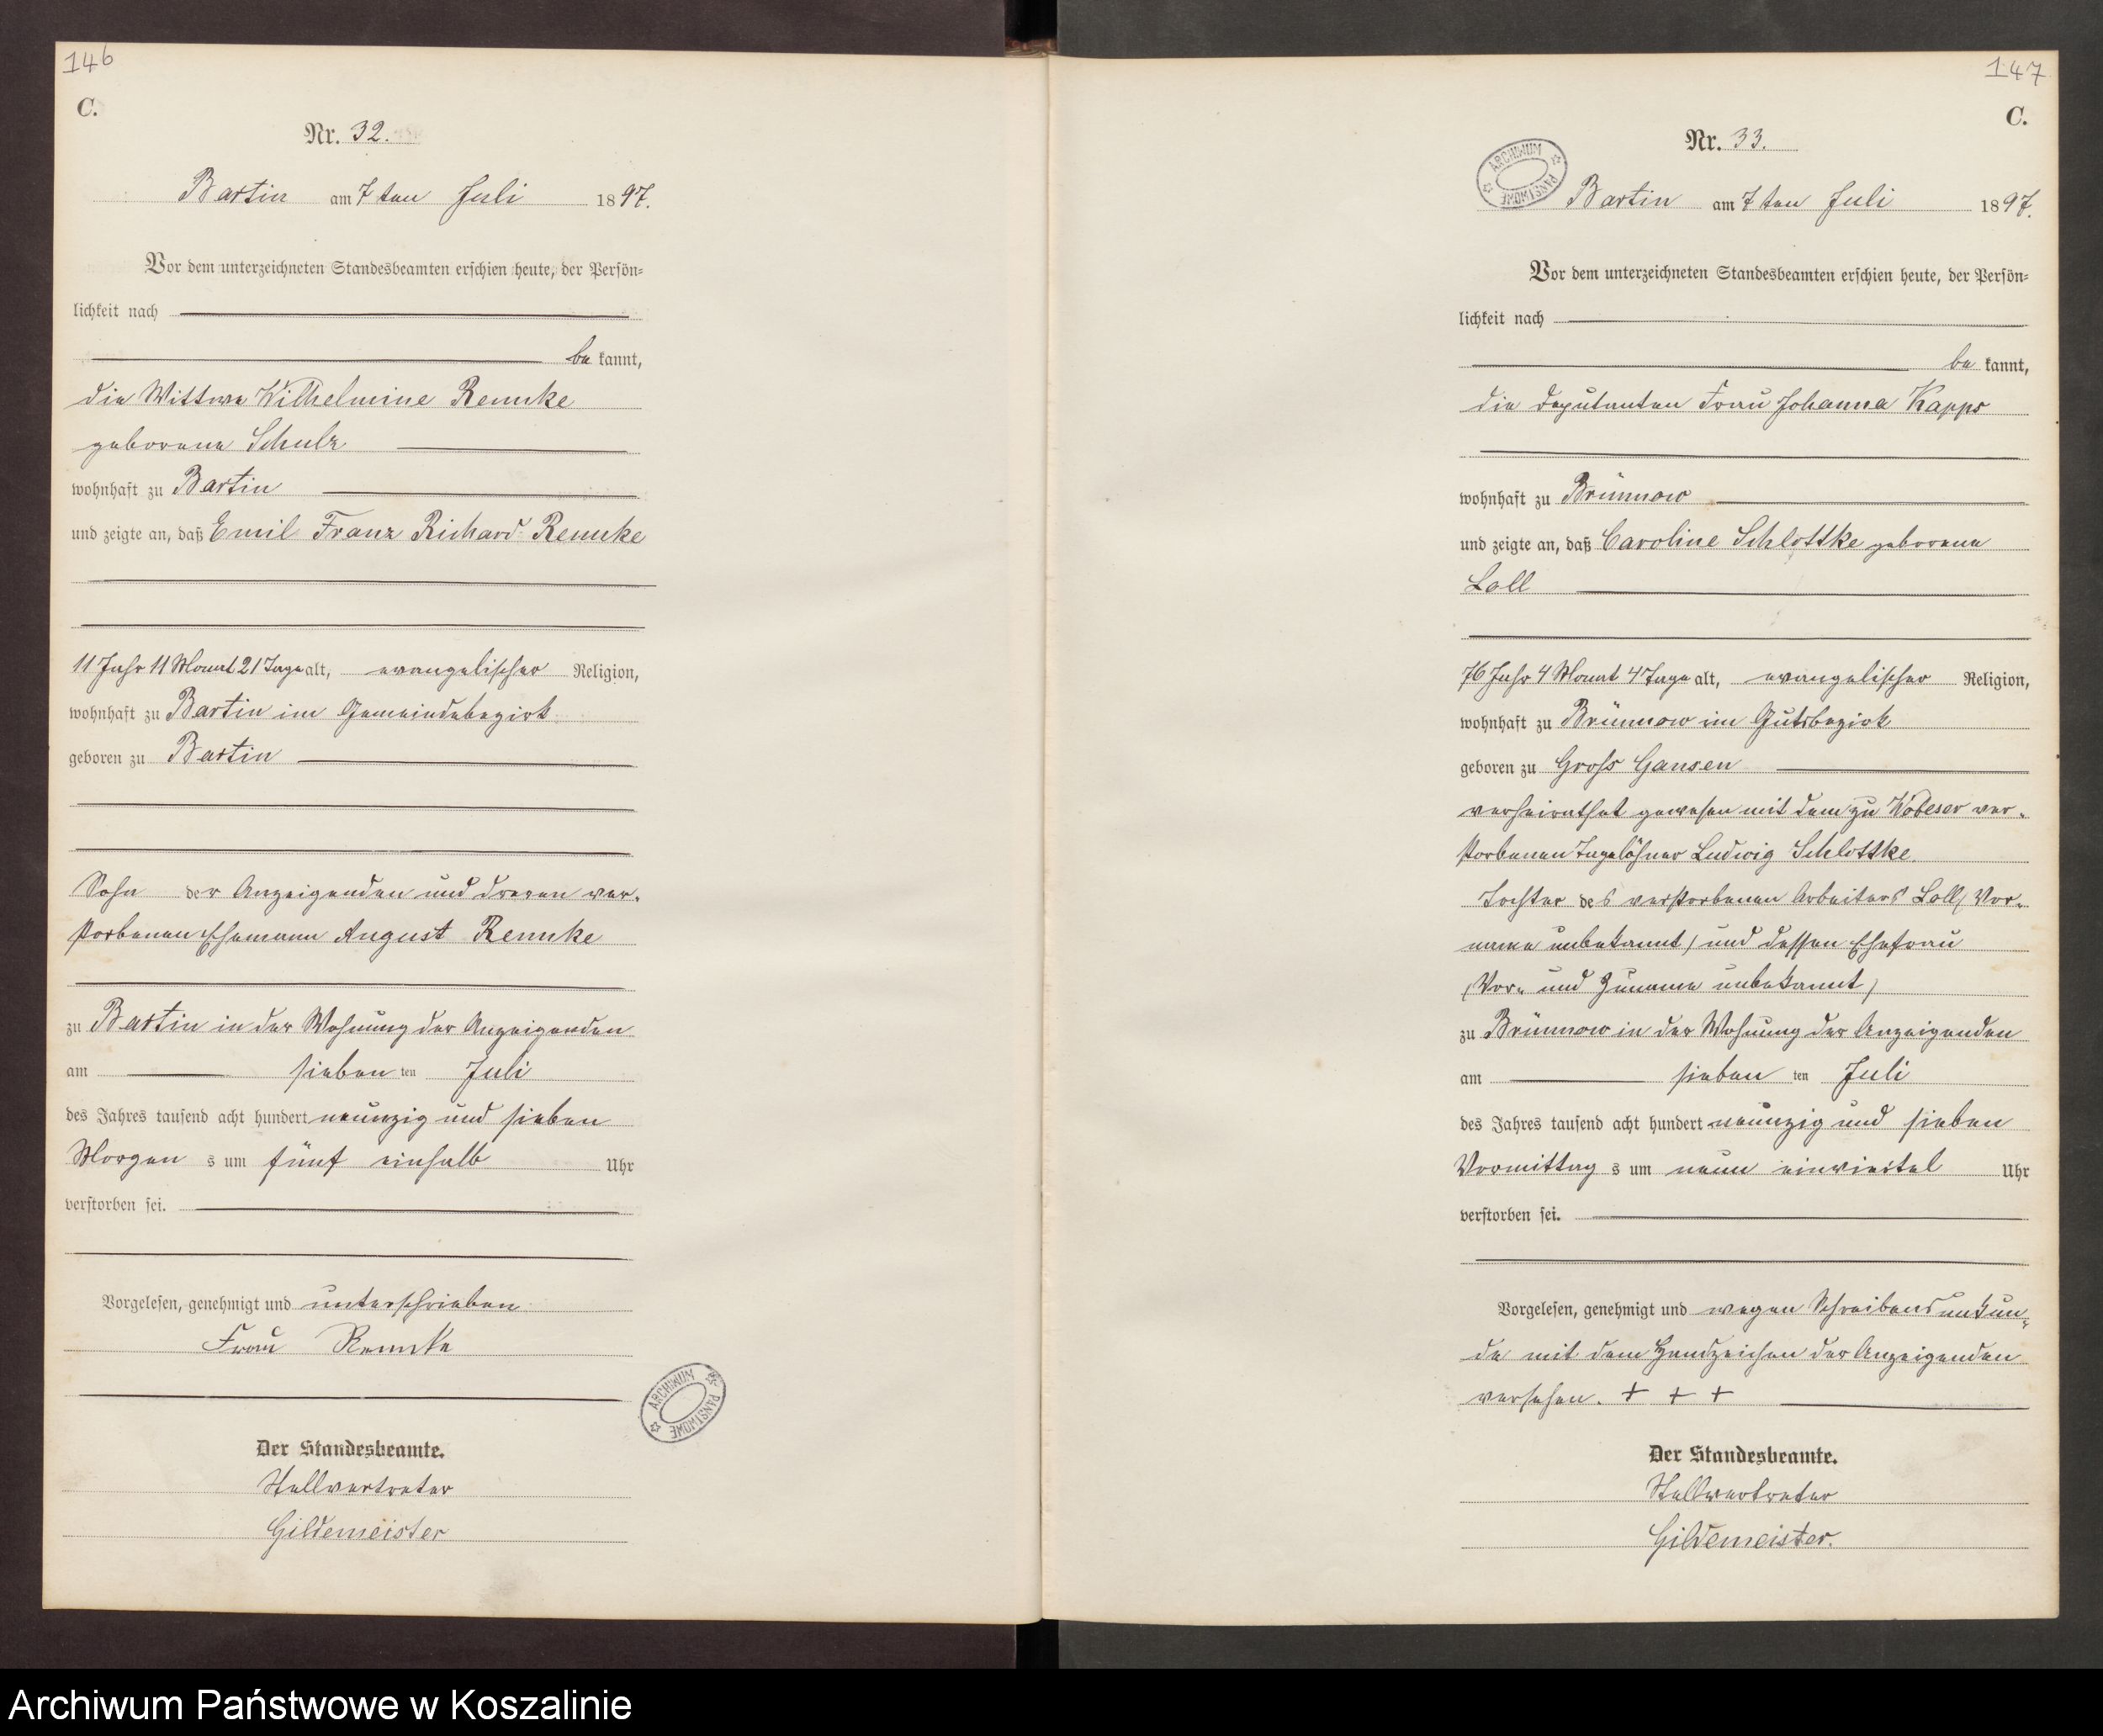 146
C.
Nr. 32.
Bartin am 7ten Juli 1897.
Vor dem unterzeichneten Standesbeamten erschien heute, der Persön=
lichkeit nach
be kannt,
die Wittwe Wilhelmine Remke
geborene Schulz
wohnhaft zu Bartin
und zeigte an, daß Emil Franz Richard Remke
11 Jahr 11 Monat 21 Tage alt, evangelischer Religion,
wohnhaft zu Bartin im Gemeindebezirk
geboren zu Bartin
Sohn der Anzeigenden und deren ver-
storbenen Ehemann August Remke
zu Bartin in der Wohnung der Anzeigenden
am sieben ten Juli
des Jahres tausend acht hundert neunzig und sieben
Morgen s um fünf einhalb Uhr
verstorben sei.
Vorgelesen, genehmigt und unterschrieben
Frau Remke
ARCHIWUM PAŃSTWOWE
Der Standesbeamte.
Stellvertreter
Gildemeister
147
C.
Nr. 33.
ARCHIWUM PAŃSTWOWE
Bartin am 7ten Juli 1897.
Vor dem unterzeichneten Standesbeamten erschien heute, der Persön=
lichkeit nach
be kannt,
die Deputanten Frau Johanna Kapps
wohnhaft zu Brünnow
und zeigte an, daß Caroline Schlottke geborene
Loll
76 Jahr 4 Monat 4 Tage alt, evangelischer Religion,
wohnhaft zu Brünnow im Gutsbezirk
geboren zu Gross Gansen
verheirathet gewesen mit dem zu Wobeser ver-
storbenen Tagelöhner Ludwig Schlottke
Tochter des verstorbenen Arbeiters Loll (Vor-
name unbekannt) und dessen Ehefrau
(Vor- und Zuname unbekannt)
zu Brünnow in der Wohnung der Anzeigenden
am sieben ten Juli
des Jahres tausend acht hundert neunzig und sieben
Vormittag s um neun einviertel Uhr
verstorben sei.
Vorgelesen, genehmigt und wegen Schreibensunkun-
de mit dem Handzeichen der Anzeigenden
versehen. + + +
Der Standesbeamte.
Stellvertreter
Gildemeister.
Archiwum Państwowe w Koszalinie